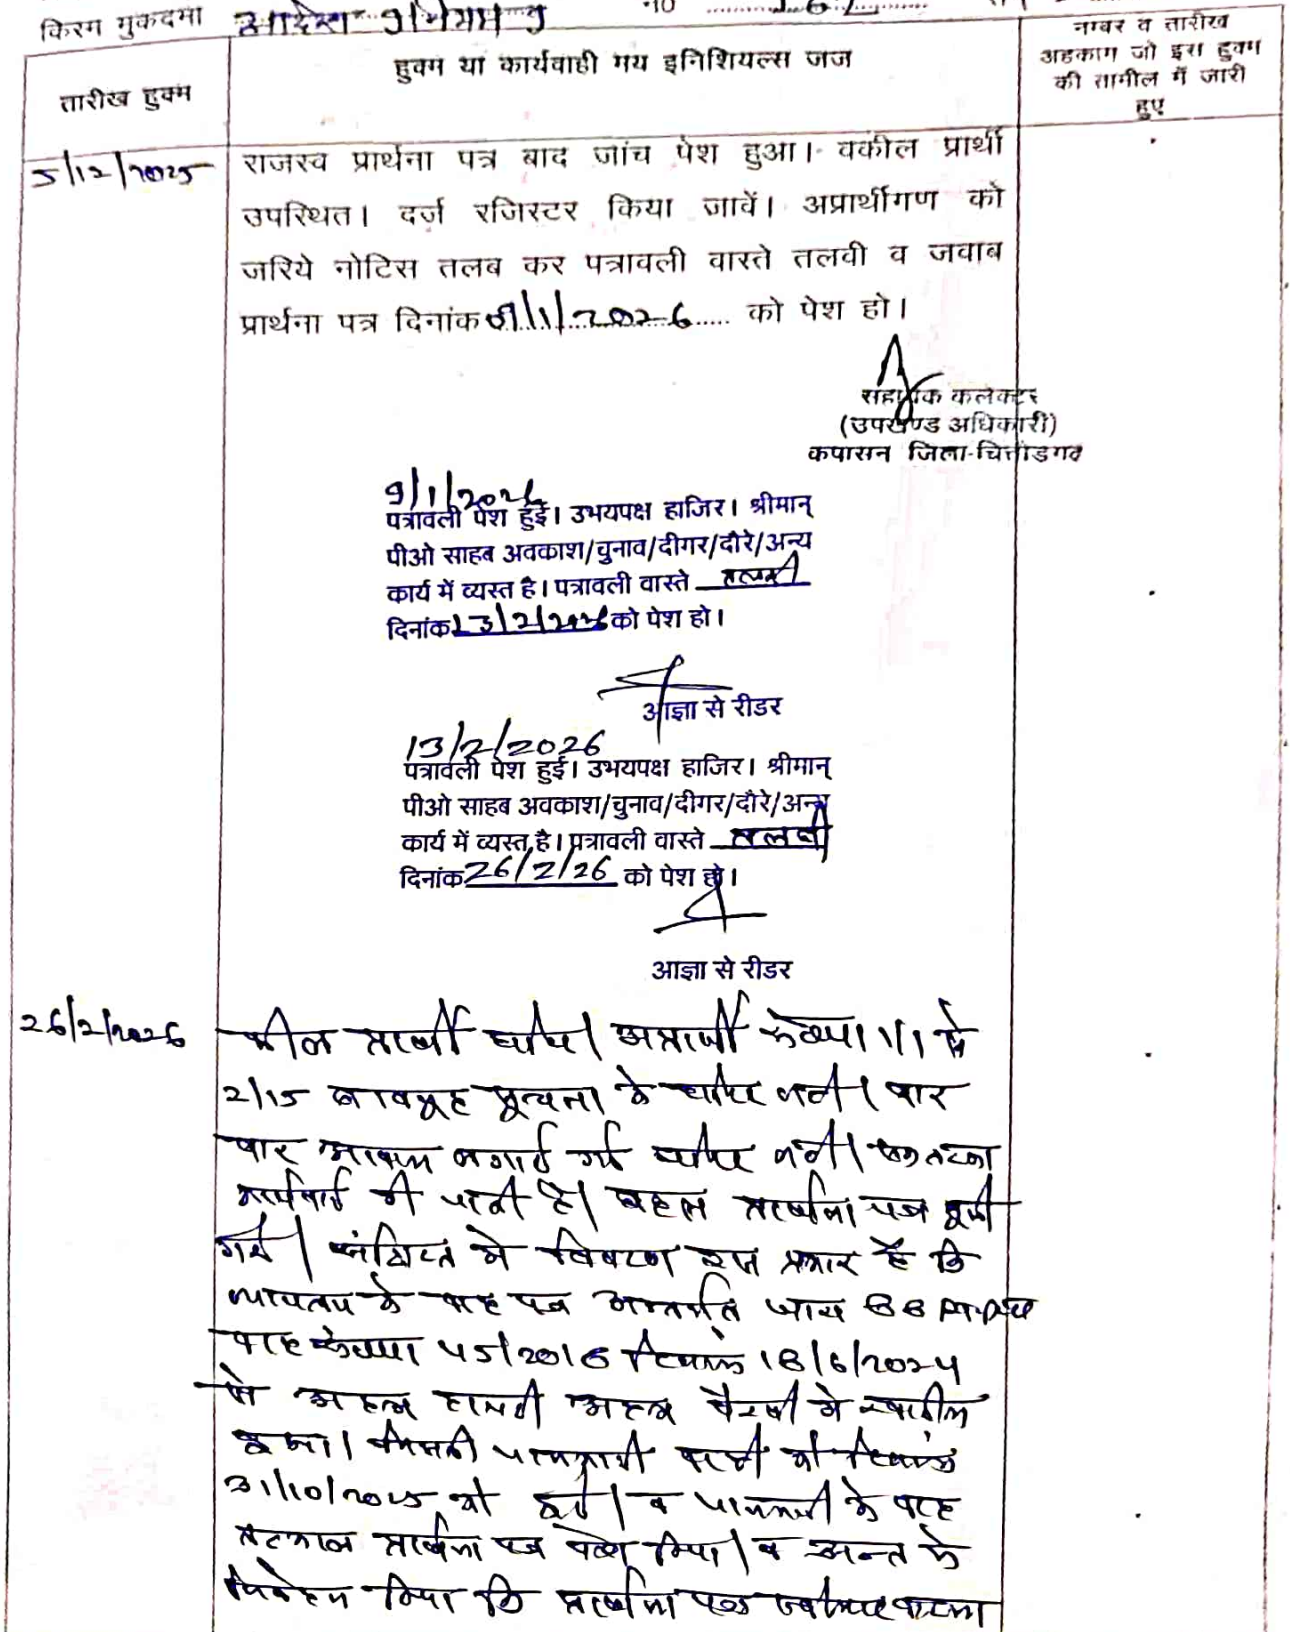 किस्म मुकदमा
तारीख हुक्म
हुक्म या कार्यवाही मय इनिशियल्स जज
नम्बर व तारीख
अहकाम जो इस हुक्म
की तामील में जारी
हुए
5/12/2025
राजस्व प्रार्थना पत्र बाद जांच पेश हुआ। वकील प्रार्थी
उपस्थित। दर्ज रजिस्टर किया जावें। अप्रार्थीगण को
जरिये नोटिस तलब कर पत्रावली वास्ते तलवी व जवाब
प्रार्थना पत्र दिनांक 9/1/2026 को पेश हो।
सहायक कलेक्टर
(उपखण्ड अधिकारी)
कपासन जिला-चित्तोडगढ
9/1/2026
पत्रावली पेश हुई। उभयपक्ष हाजिर। श्रीमान्
पीओ साहब अवकाश/चुनाव/दीगर/दौरे/अन्य
कार्य में व्यस्त है। पत्रावली वास्ते तलबी
दिनांक 13/2/2026 को पेश हो।
आज्ञा से रीडर
13/2/2026
पत्रावली पेश हुई। उभयपक्ष हाजिर। श्रीमान्
पीओ साहब अवकाश/चुनाव/दीगर/दौरे/अन्य
कार्य में व्यस्त है। पत्रावली वास्ते तलबी
दिनांक 26/2/26 को पेश हो।
आज्ञा से रीडर
26/2/2026
वकील प्रार्थी हाजिर। अप्रार्थी संख्या 1/1 से
2/15 बावजूद सूचना के हाजिर नहीं। बार
बार आवाज लगाई गई हाजिर नहीं। एक तरफा
कार्यवाही की जाती है। बहस प्रार्थना पत्र सुनी
गई। संक्षिप्त में विवरण इस प्रकार है कि
न्यायालय के वाद पत्र अन्तर्गत धारा 88
वाद संख्या 45/2016 दिनांक 18/6/2024
से अदम हाजरी अदम पैरवी में खारीज
हुआ। जिसकी जानकारी प्रार्थी को दिनांक
31/10/2025 को हुई। व जानकारी के बाद
तत्काल प्रार्थना पत्र पेश किया। व अन्त में
निवेदन किया कि प्रार्थना पत्र स्वीकार